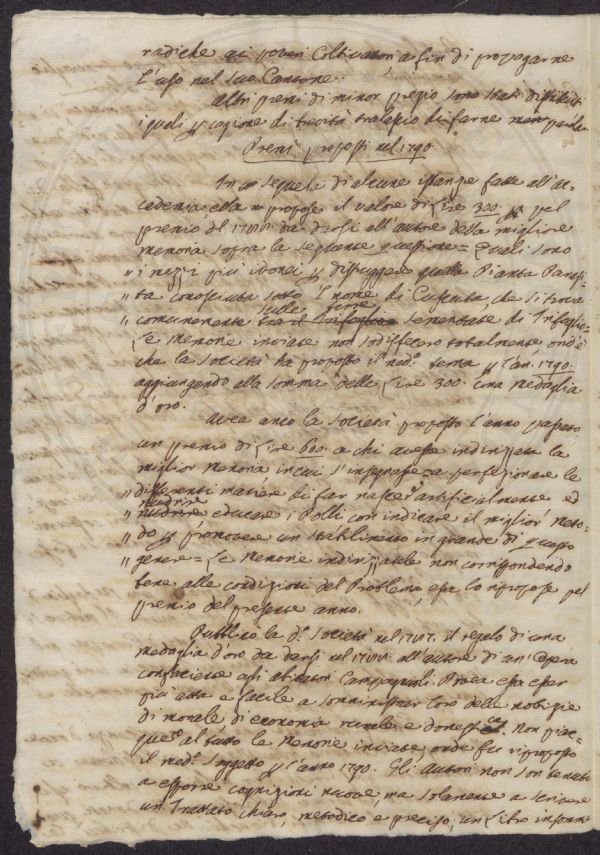 radiche ai poveri Coltivatori a fin di propogarne
l'uso nel suo Cantone.
Altri premi di minor pregio sono stati distribuiti
i quali p cagione di brevità tralascio di farne parola
Premi proposti nel 1790
In seguela di alcune istanze fatte all'ac=
cademia, ella propose il valore di Lire 300. pel
premio del da darsi all'autore della migliore
memoria sopra la seguente quessione = Quali sono
" i mezzi più idonei p distruggere quella Pianta Parasi=
" ta conosciuta sotto l nome di Cuscuta, che si trova
sulle terre
" comunemente tra il Trifoglio sementate di Trifoglio =
Le memorie inviate non sodisfecero totalmente ond'è
che la società ha proposto il med.o tema p l'an. 1790.
aggiungendo alla somma delle Lire 300. una medaglia
d'oro.
Avea anco la società proposto l'anno passato
un premio di Lire 600. a chi avesse indirizzata la
miglior memoria in cui s'insegnasse a perfezionare le
" differenti maniere di far nascere artificialmente ed
nudrire
" nudrire educare i Polli con indicare il miglior meto=
" do p promovere un stabilimento in grande di questo
" genere = Le memorie indirizzatele non corrispondendo
bene alle condizioni del Problema essa lo ripropose pel
premio del presente anno.
Pubblico la d.a società nel il regalo di una
medaglia d'oro da darsi nel all'autore di un'Opera
confaciente agli abitatori Campagnuoli. Dovea essa esser
più atta e facile a somministrar loro delle notizie
di morale di economia rurale e domestica. Non piac=
quero al tutto le memorie inviate onde fu riproposto
il med.o soggetto p l'anno 1790. Gli Autori non son tenuti
a esporre cognizioni nuove, ma solamente a scrivere
un Trattato chiaro, metodico e preciso, un Libro insomma